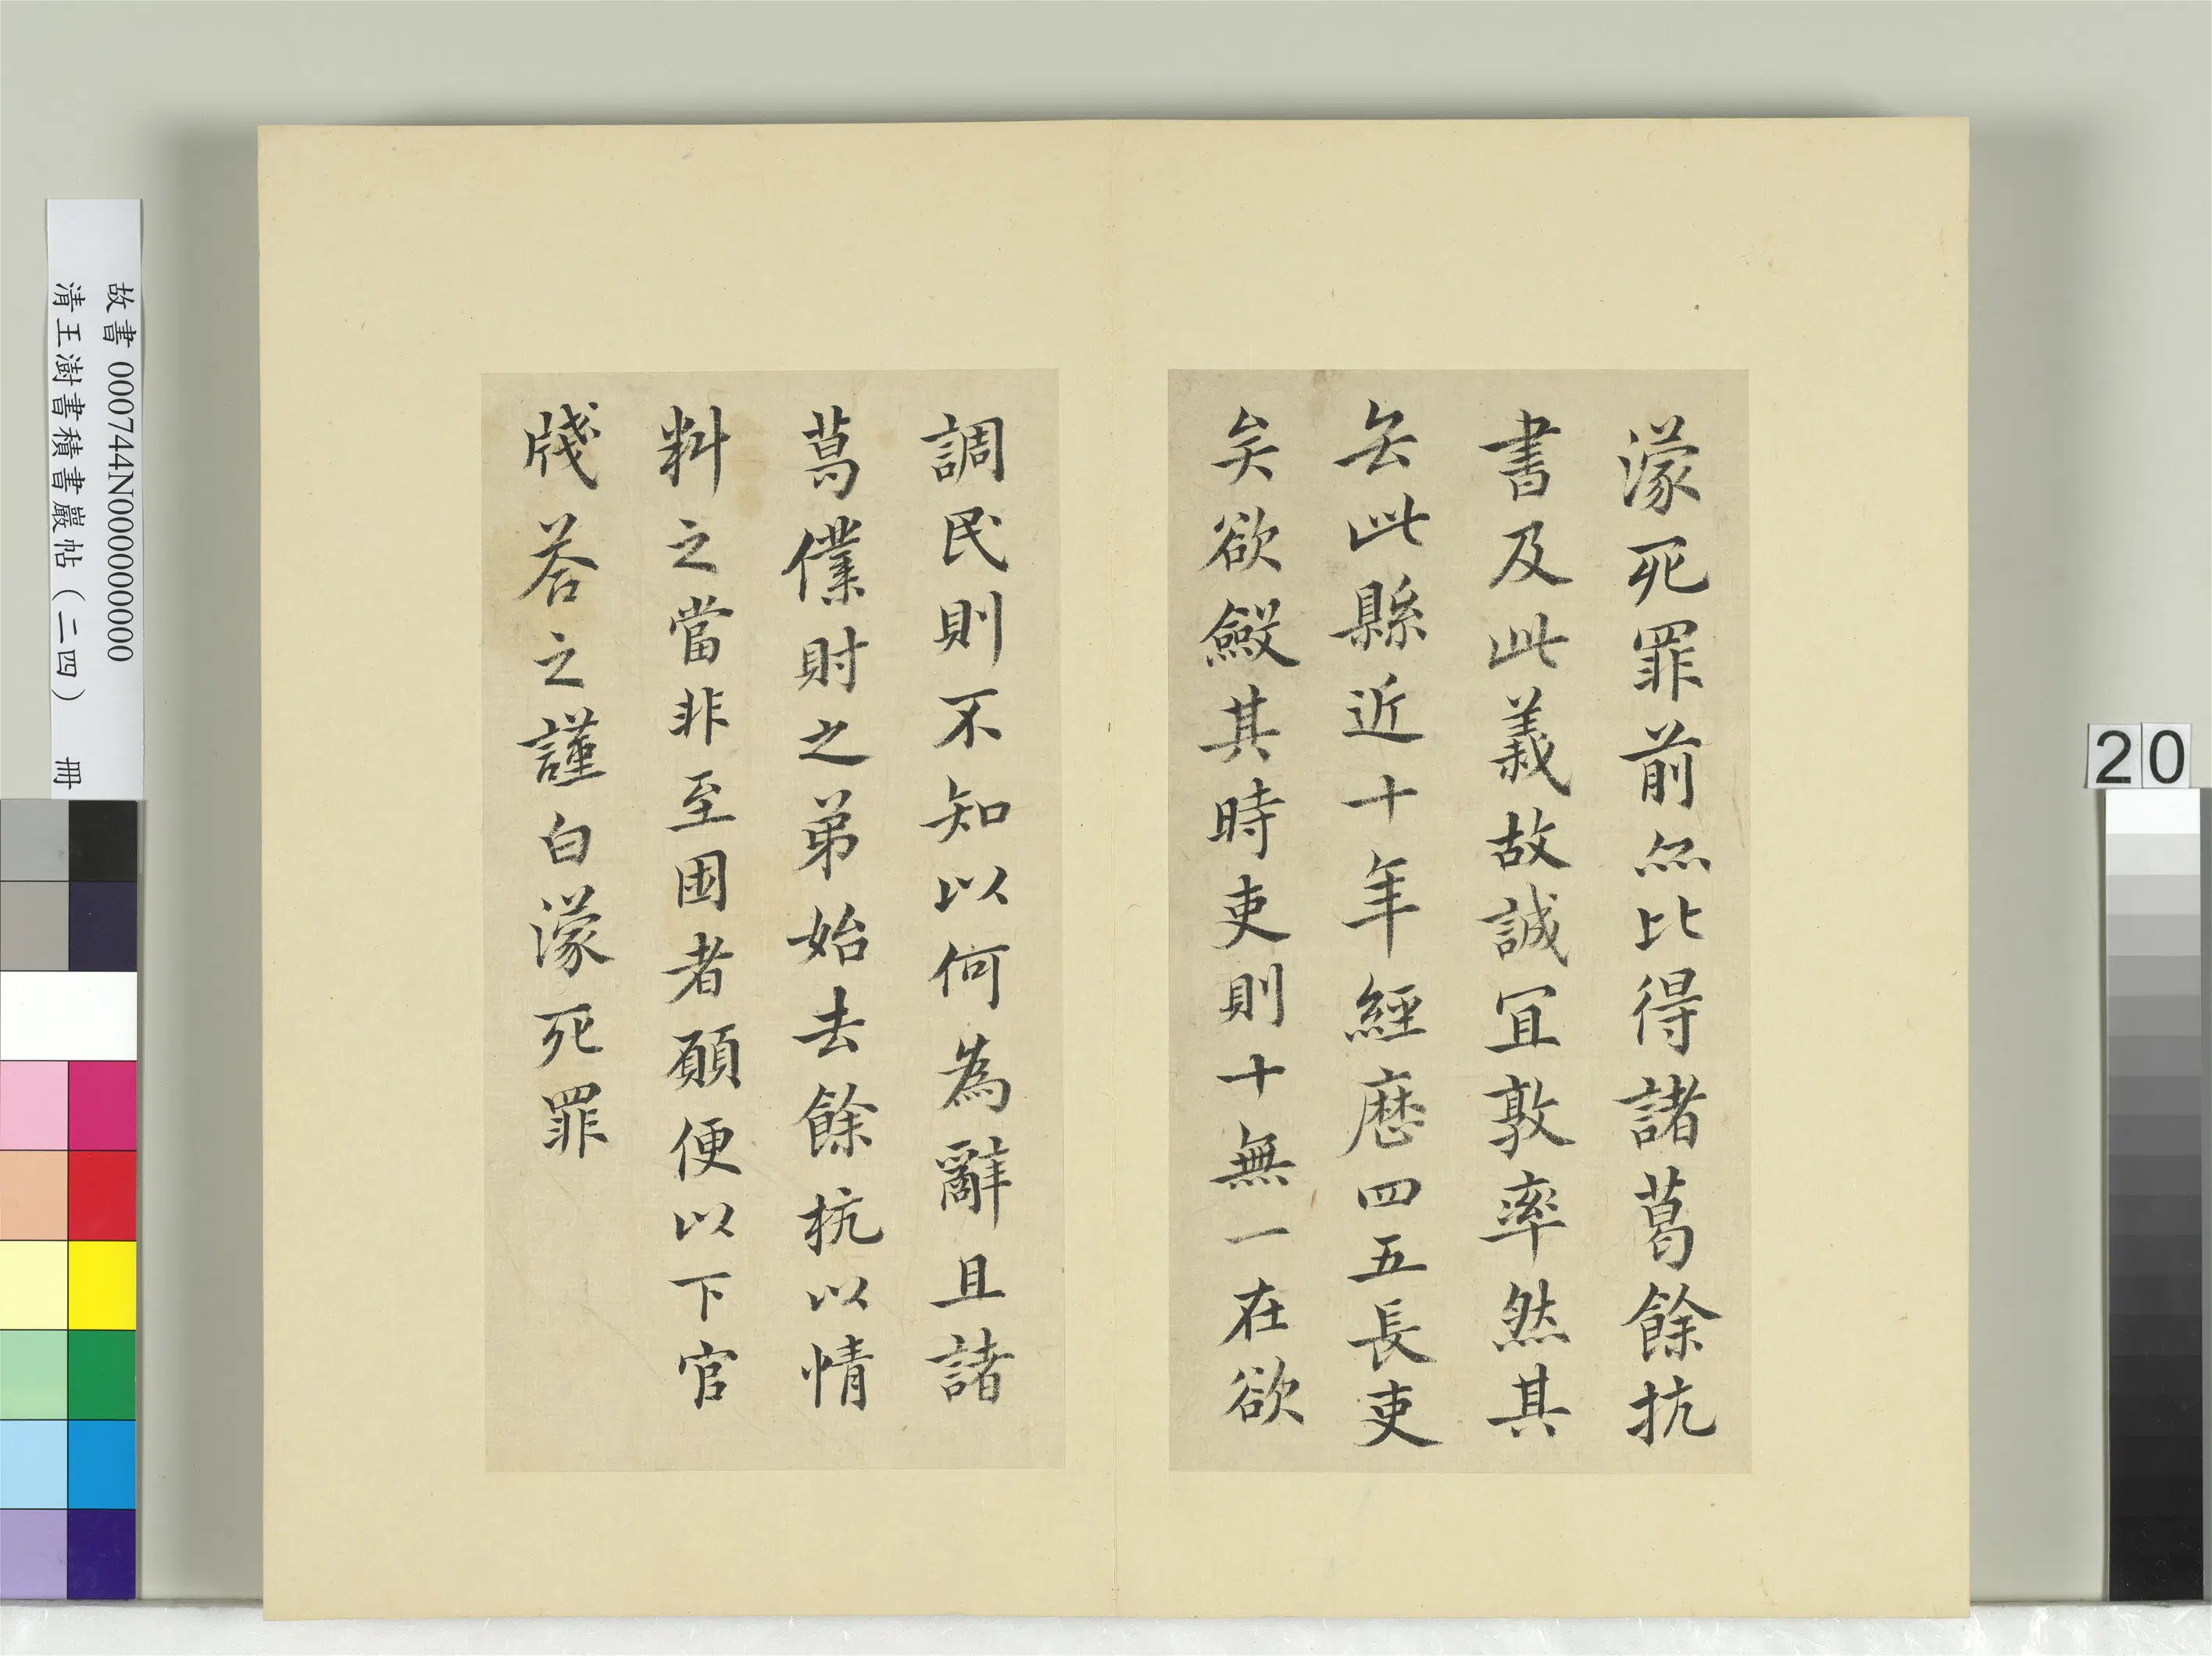 濛死罪前亦比得諸葛餘抗
書及此義故誠宜敦率然其
去此縣近十年經歷四五長吏
矣欲斂其時吏則十無一在欲
調民則不知以何為辭且諸
葛僕財之弟始去餘抗以情
料之當非至困者願便以下官
牋荅之謹白濛死罪
故書 000744N000000000
清王澍書積書巖帖（二四） 冊
20